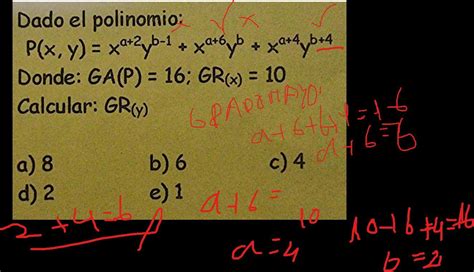 Dado el polinomio:
P(x, y) = x^{a+2}y^{b-1} + x^{a+6}y^{b} + x^{a+4}y^{b+4}
Donde: GA(P) = 16; GR(x) = 10
Calcular: GR(y)
a) 8 b) 6 c) 4
d) 2 e) 1
a+6=
10
a=4
10+b+4=16
b=2
2+4=6